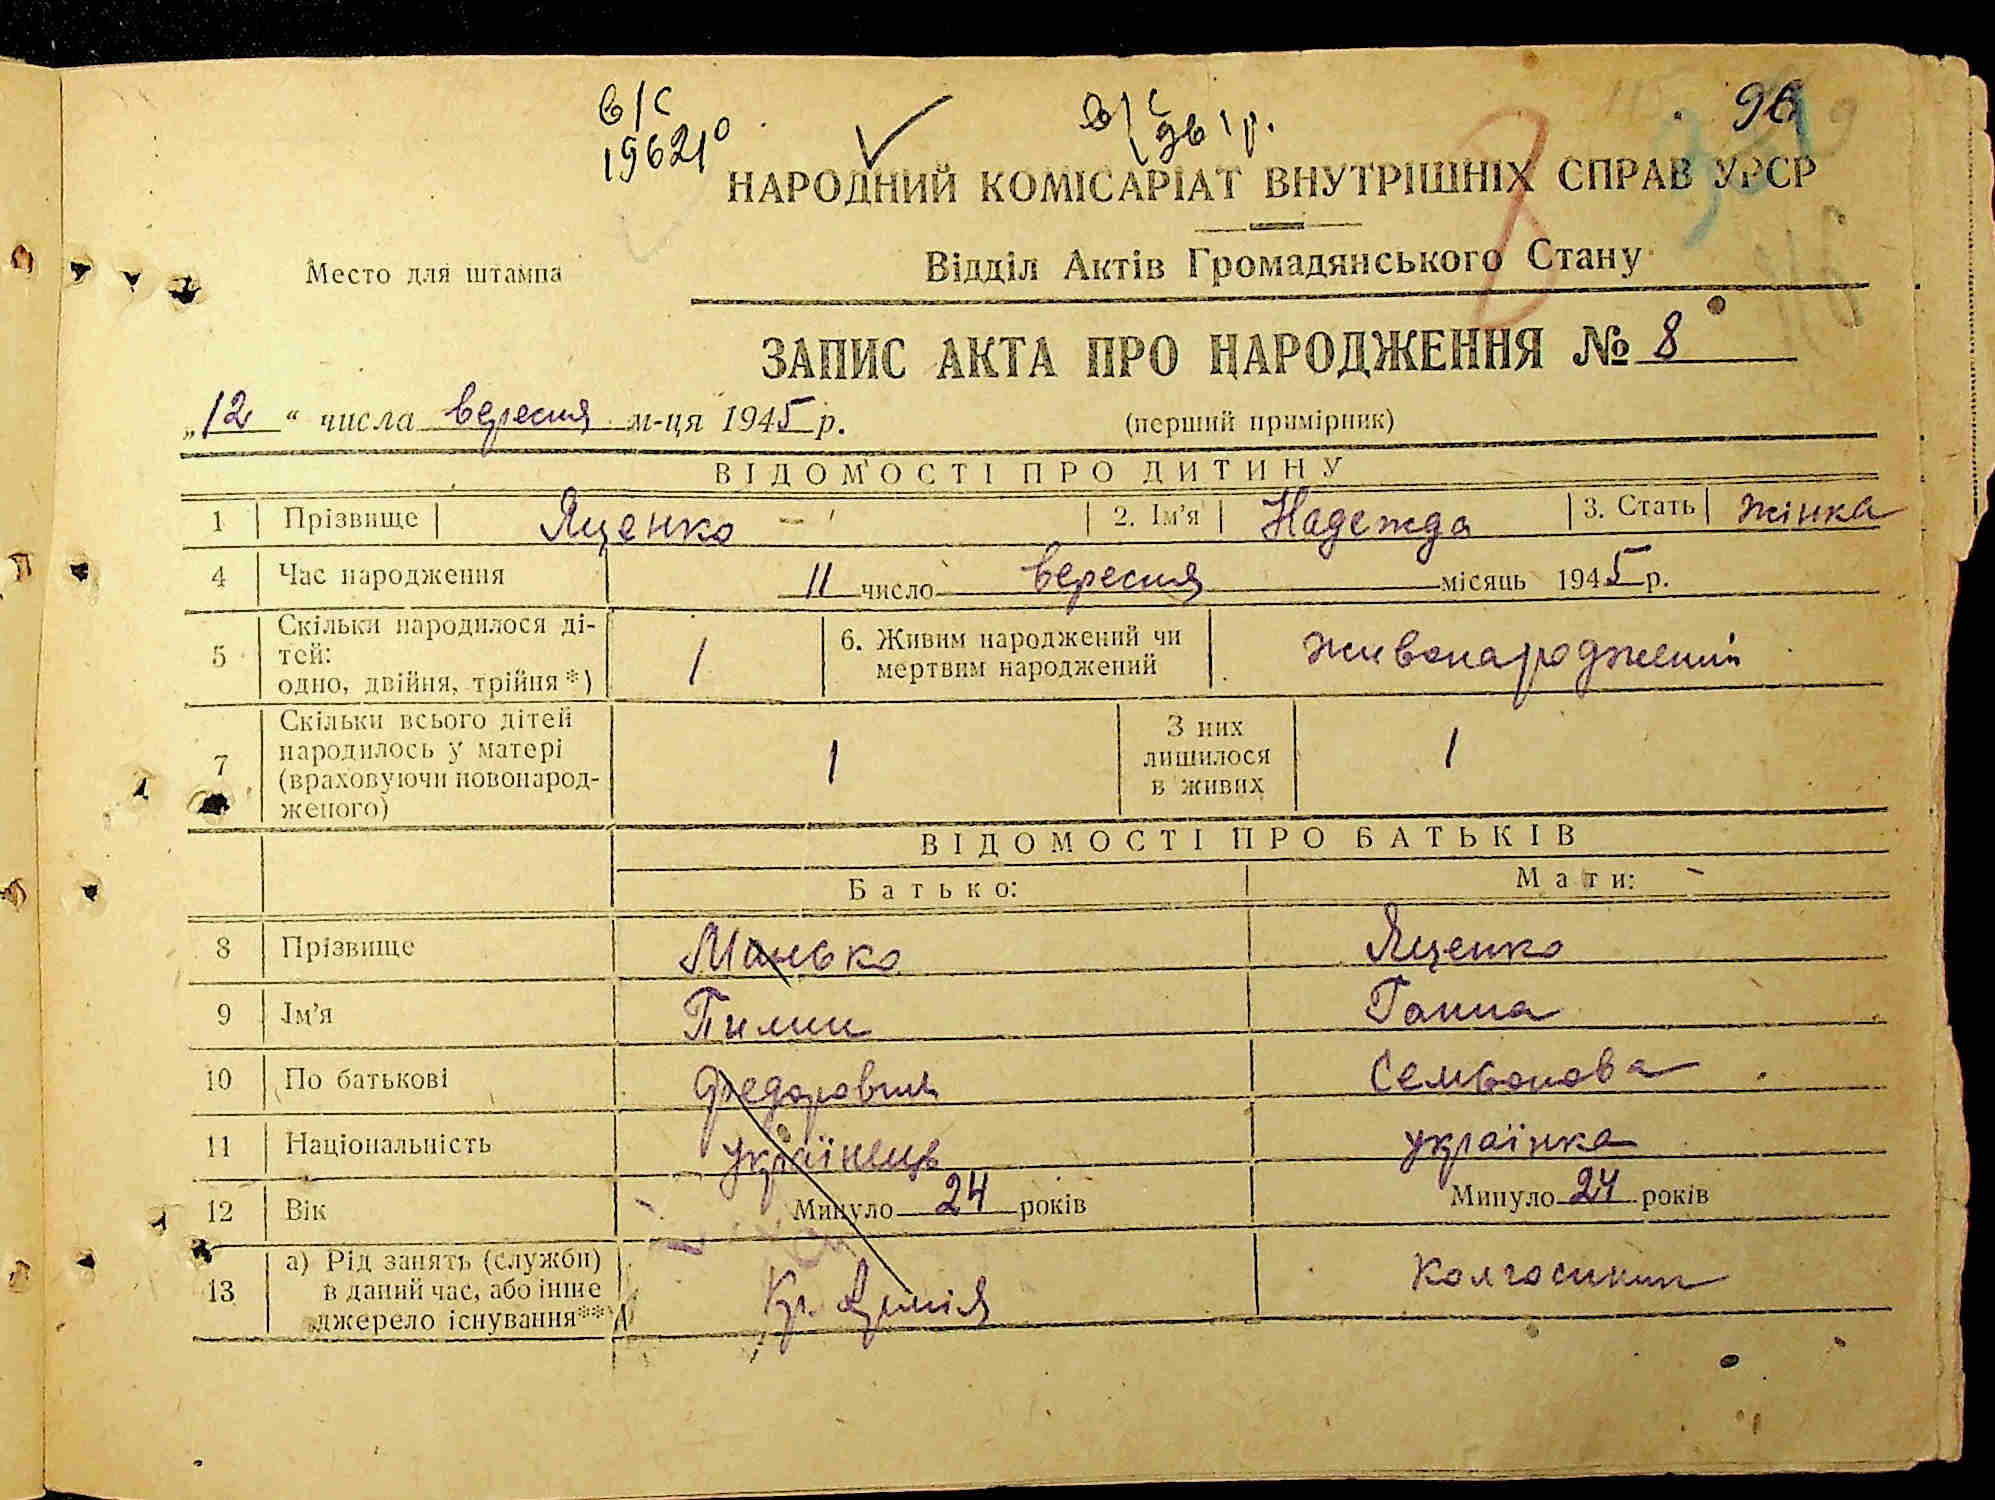 в/с
1962 р
в/с
961р.
96
НАРОДНИЙ КОМІСАРІАТ ВНУТРІШНІХ СПРАВ УРСР
Место для штампа
Відділ Актів Громадянського Стану
ЗАПИС АКТА ПРО НАРОДЖЕННЯ № 8
„12“ числа вересня м-ця 1945 р.
(перший примірник)
ВІДОМОСТІ ПРО ДИТИНУ
1 Прізвище Яценко 2. Ім'я Надежда 3. Стать жінка
4 Час народження 11 число вересня місяць 1945 р.
5 Скільки народилося ді-
тей:
одно, двійня, трійня*) 1
6. Живим народжений чи
мертвим народжений живонароджений
7 Скільки всього дітей
народилось у матері
(враховуючи новонарод-
женого) 1
З них
лишилося
в живих 1
ВІДОМОСТІ ПРО БАТЬКІВ
Батько: Мати:
8 Прізвище Манько Яценко
9 Ім'я Пимин Ганна
10 По батькові Федорович Семьонова
11 Національність українець українка
12 Вік Минуло 24 років Минуло 24 років
13 а) Рід занять (служби)
в даний час, або інше
джерело існування** Кр. Армія колгоспник